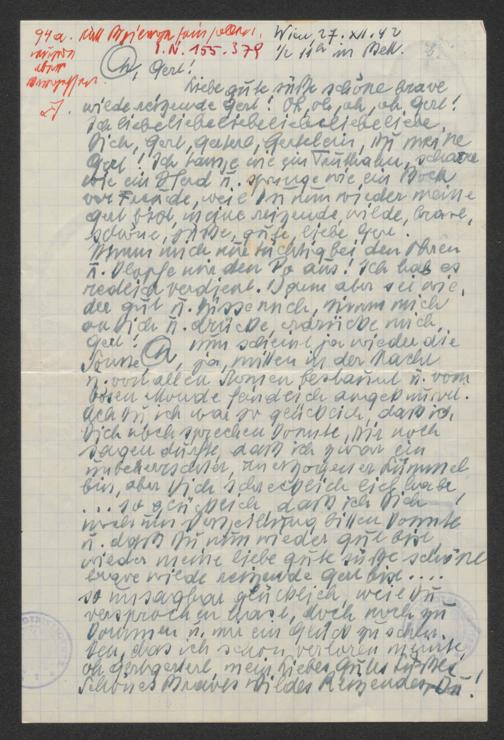 94a. Wien 27. XII. 42
I.N. 155.379 1/2 11h im Bett.
Oh, Gerl!
Liebe gute süße schöne brave
wilde reizende Gerl! Oh, oh, oh, oh, Gerl!
Ich liebeliebeliebeliebeliebeliebe
Dich, Gerl, Gerl, Gerlelein, Du meine
Gerl! Ich tanze wie ein Truthahn, scharre
wie ein Pferd u. springe wie ein Bock
vor Freude, weil Du nun wieder meine
gut bist, meine reizende, wilde, brave,
schöne, süße, gute, liebe Gerl.
Nimm mich nur tüchtig bei den Ohren
u. klopfe mir den Po aus! Ich hab es
redlich verdient. Dann aber sei wie-
der gut u. küsse mich, nimm mich
an Dich u. drücke, erdrücke mich,
Gerl! nun scheint ja wieder die
Sonne Oh, ja, mitten in der Nacht
u. von allen Sternen bestaunt u. vom
bösen Monde feindlich angeknurrt.
Ach Du, ich war so glücklich, dass ich
Dich noch sprechen konnte, Dir noch
sagen durfte, dass ich zwar ein
unbeherrschter, unerzogener Lümmel
bin, aber Dich schrecklich lieb habe
.... so glücklich, dass ich Dich
noch um Verzeihung bitten konnte
u. dass Du nun wieder gut bist
wieder meine liebe gute süße schöne
brave wilde reizende Gerl bist ....
so unsagbar glücklich, weil Du
versprochen hast, doch noch zu
kommen u. mir ein Glück zu schen-
ken, das ich schon verloren meinte,
oh Gerl, mein Liebes, Gutes Süßes
Schönes Braves Wildes Reizendes, Du!